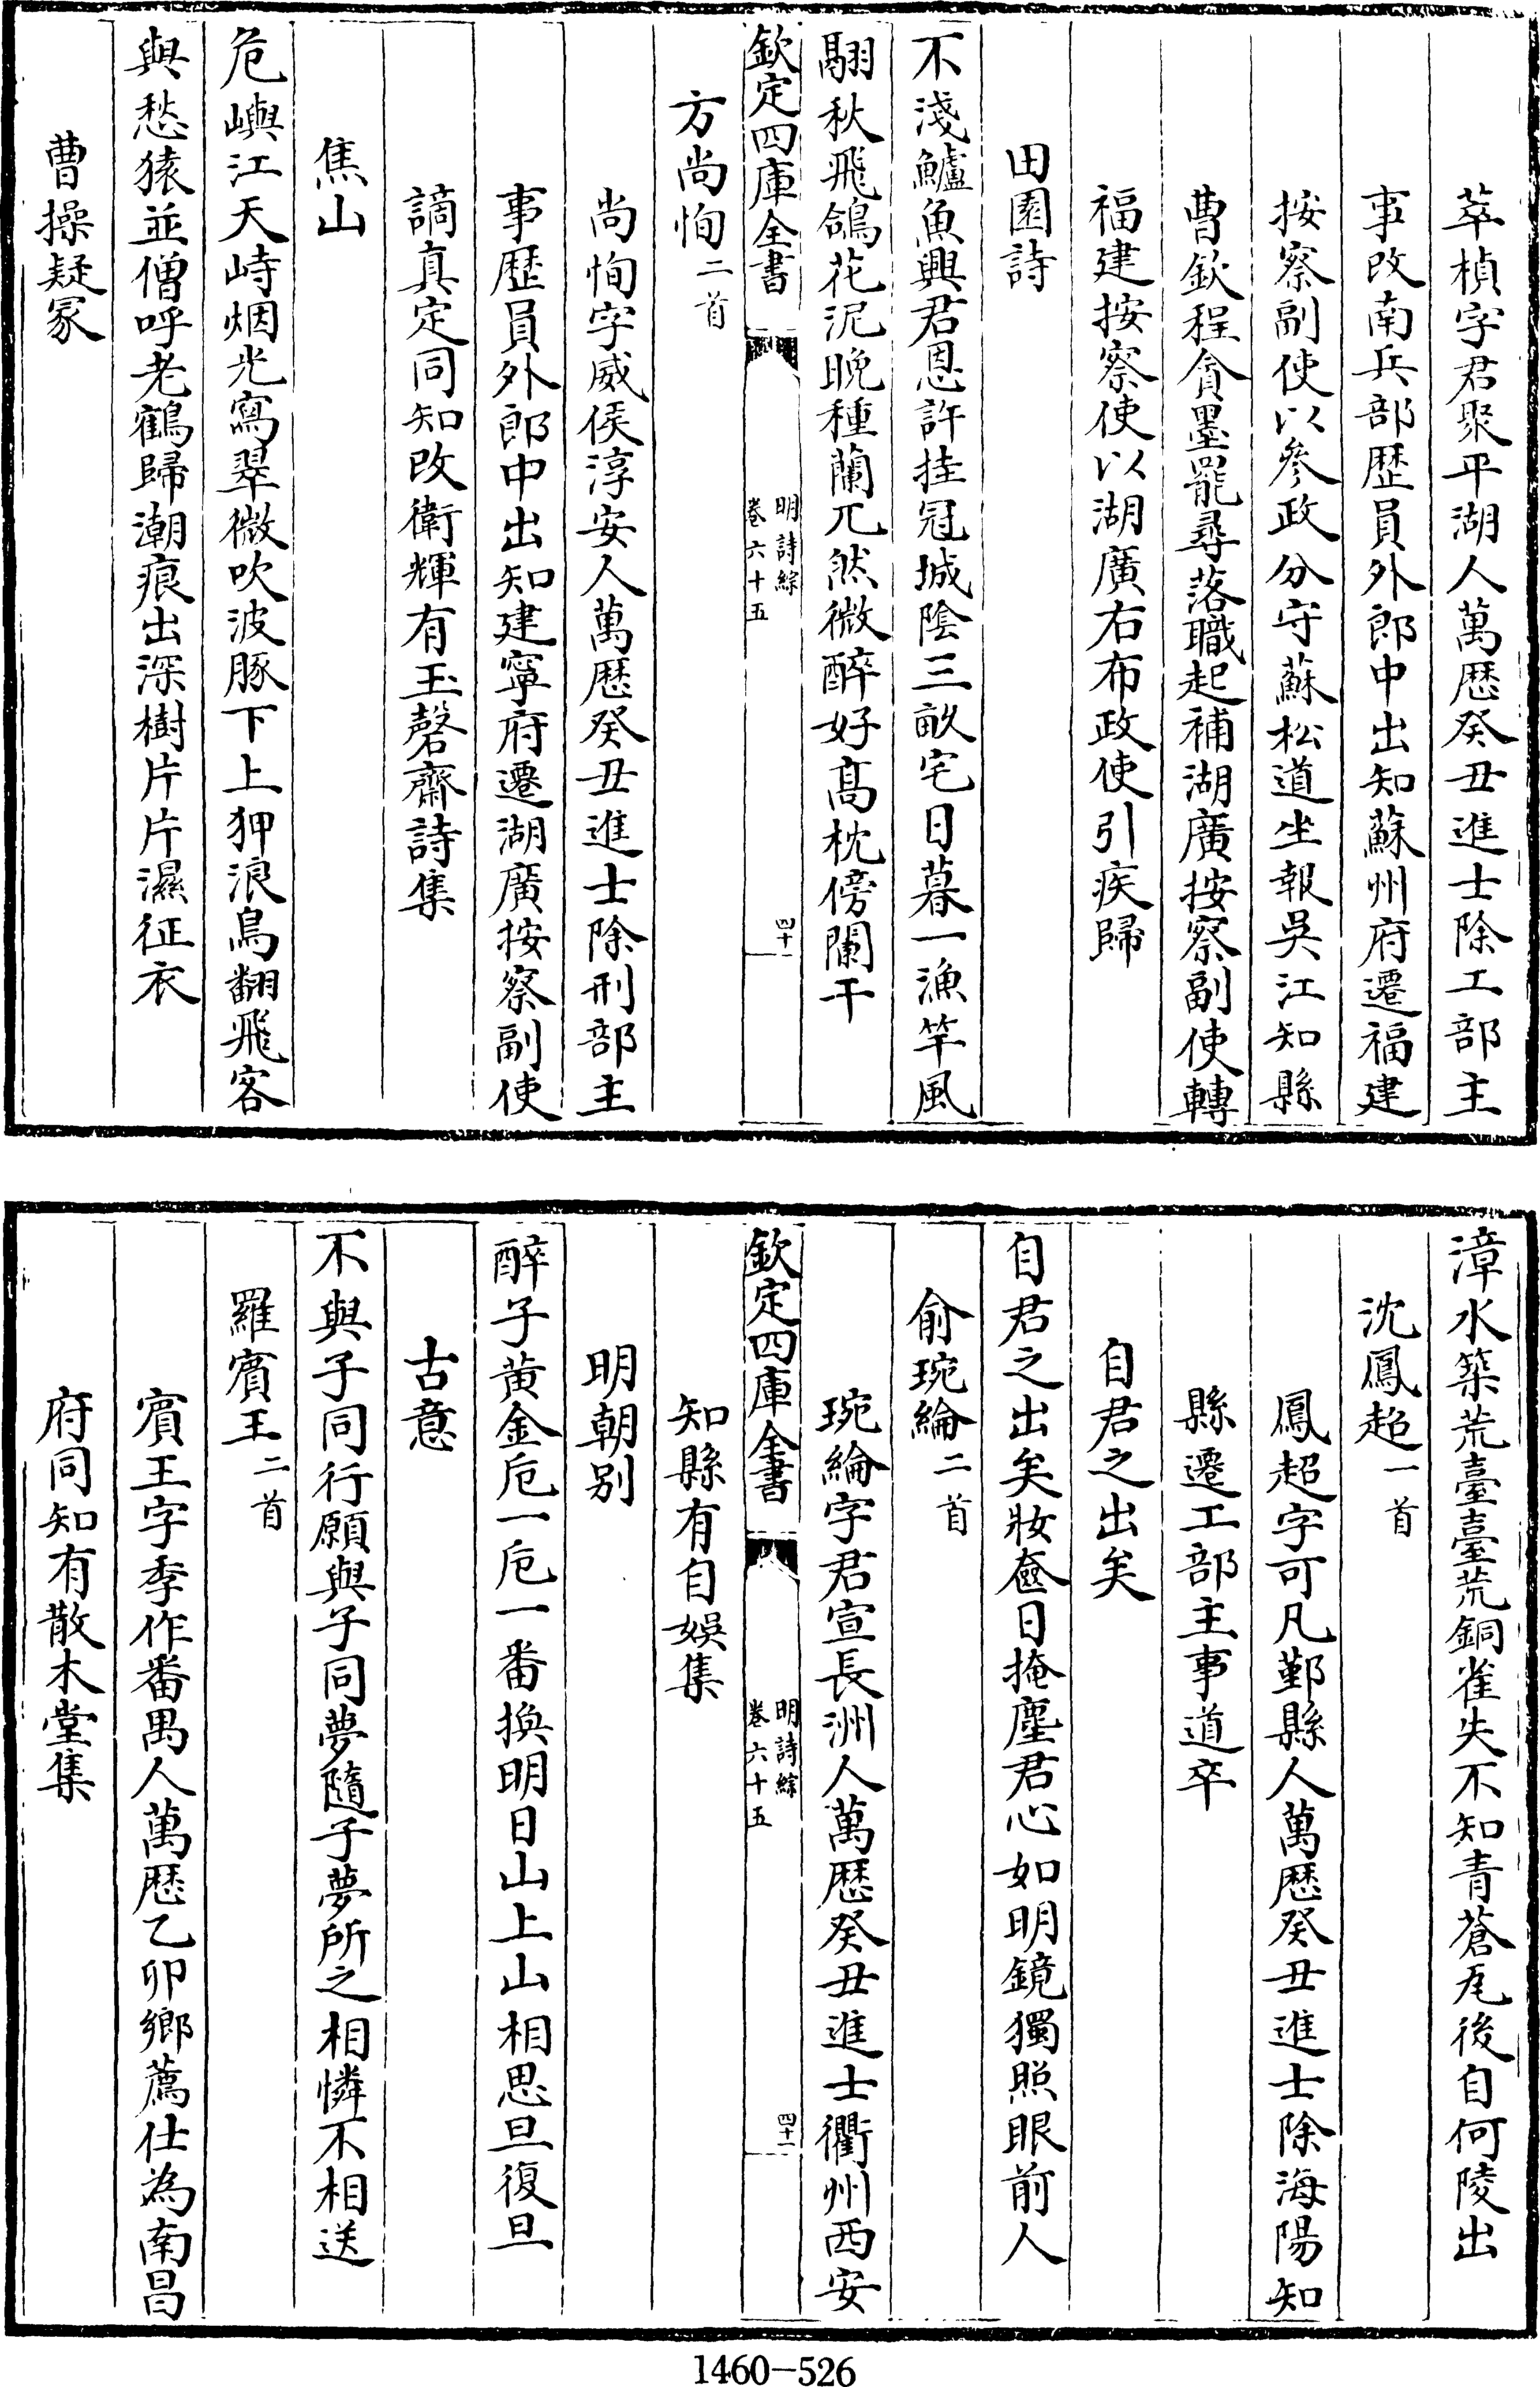 萃楨字君聚平湖人萬歷癸丑進士除工部主
事改南兵部歷員外郎中出知蘇州府遷福建
按察副使以參政分守蘇松道坐報吳江知縣
曹欽程貪墨罷尋落職起補湖廣按察副使轉
福建按察使以湖廣右布政使引疾歸
田園詩
不淺鱸魚興君恩許挂冠城陰三畝宅日暮一漁竿風
翮秋飛鴿花泥晚種蘭兀然微醉好高枕傍闌干
欽定四庫全書
明詩綜
卷六十五
四十
方尚恂二首
尚恂字威侯淳安人萬歷癸丑進士除刑部主
事歷員外郎中出知建寧府遷湖廣按察副使
謫真定同知改衛輝有玉磬齋詩集
焦山
危嶼江天峙烟光寫翠微吹波豚下上狎浪鳥翻飛客
與愁猿並僧呼老鶴歸潮痕出深樹片片濕征衣
曹操疑冢
漳水築荒臺臺荒銅雀失不知青蒼瓦後自何陵出
沈鳳超一首
鳳超字可凡鄞縣人萬歷癸丑進士除海陽知
縣遷工部主事道卒
自君之出矣
自君之出矣妝奩日掩塵君心如明鏡獨照眼前人
俞琬綸二首
琬綸字君宣長洲人萬歷癸丑進士衢州西安
欽定四庫全書
明詩綜
卷六十五
四十一
知縣有自娛集
明朝別
醉子黃金卮一卮一番換明日山上山相思旦復旦
古意
不與子同行願與子同夢隨子夢所之相憐不相送
羅賓王二首
賓王字季作番禺人萬歷乙卯鄉薦仕為南昌
府同知有散木堂集
1460-526